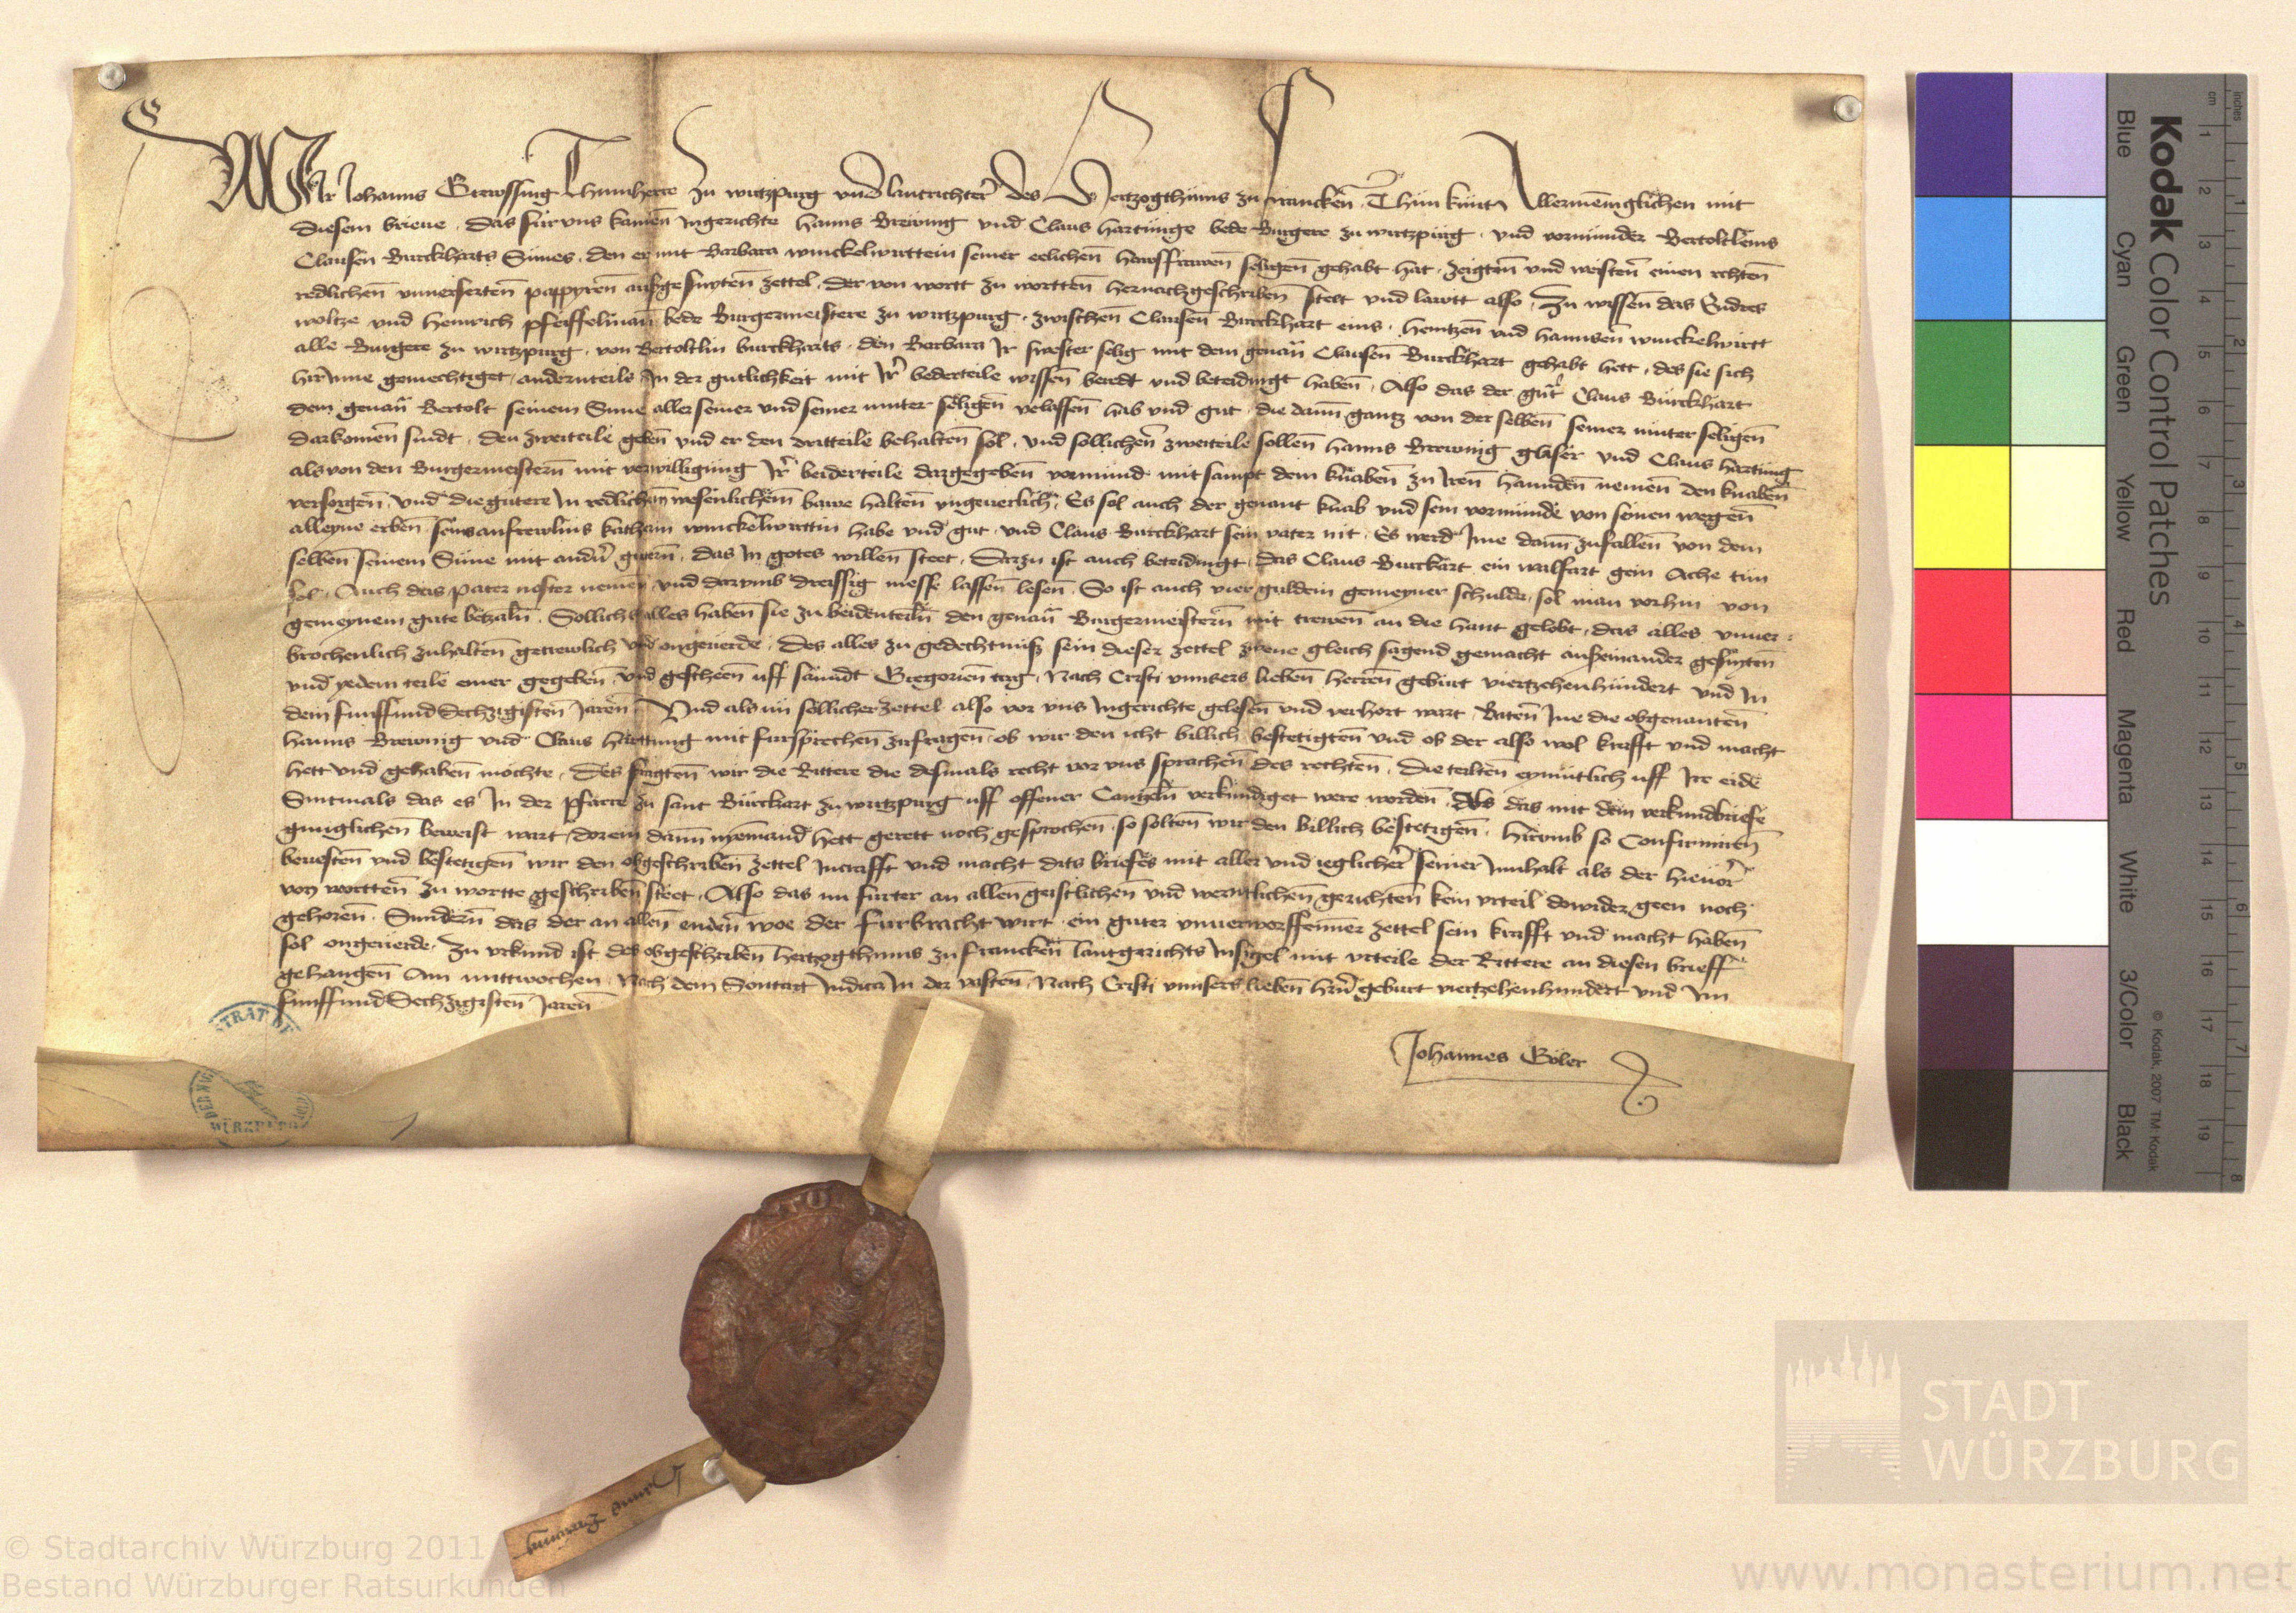 Wir Johanns Grewssing Thumherre zu wirtzpurg und lantrichter des Hertzogthums zu Francken Thun kunt Allermeniglichen mit
diesem brieue, das fur uns kamen Ingerichte hanns Brewnig und Claus hartunge bede Burgere zu wirtzpurg, und vormunder Bertoltleins
Clausen Burckharts Sunes, den er mit Barbara winckelwirttein seiner eelichen hawsfrawen seligen gehabt hat, zeigten und weisten einen rechten
redlichen unuerserten pappyren ausgesnyten zettel, der von wortt zu wortten hernachgeschriben steet und lawtt also, Zu wissen das Endres
woltze und heinrich pfeiffelman bede Burgermeistere zu wirtzpurg, zwischen Clausen Burckhart eins, heintzen und hannsen winckelwirtt
alle Burgere zu wirtzpurg, von Bertoltlin burckharts, den Barbara Ir swester selig mit dem genan̄ Clausen Burckhart gehabt hett, des sie sich
hirInne gemechtiget, andernteils In der gutlichkeit mit Ir̄ bederteile wissen beredt und beteidingt haben, Also das der gn̄t Claus Burckhart
dem genan̄ Bertolt seinem Sune aller seiner und seiner muter seligen verlassen hab und gut, die dann gantz von der selben seiner muter seligen
darkomen sindt, den zweiteile geben und er den dritteile behalten sol, und sollichen zweiteile sollen hanns Brewnig glaser und Claus hartung
als von den Burgermeistern mit verwilligung Ir̄ beiderteile dargegeben vormund mit sampt dem knaben zu Iren hannden nemen den knaben
versorgen, und die gutere In redlichem wesenlichem bawe halten ungeuerlich, Es sol auch der genant knab und sein vormunde von seinen wegen
alleyne erben seins anfrewlins kathan̄ winckelwirttin habe und gut, und Claus Burckhart sein vater nit, Es werd Ime dann zufallen von dem
selben seinem Sune mit andn̄ gutern, das In gotes willen steet, Darzu ist auch beteidingt, das Claus Burckart ein walfart gein Ache tun
sol, Auch das pater noster nemen und darumb dreissig messe lassen lesen, So ist auch vier guldein gemeyner schulde, sol man vorhin von
gemeynem gute betzaln̄, Sollichs alles haben sie zu beidenteiln̄ den genan̄ Burgermeistern mit trewen an die hant gelobt, das alles unuer-
brochenlich zuhalten getrewlich und ongeuerde, Des alles zu gedechtnuss sein dieser zettel zwene gleich sagend gemacht auseinander gesnyten
und yedem teile einer gegeben, und gescheen uff sanndt Gregorien tag, Nach Cristi unnsers lieben herren geburt viertzehenhundert und In
dem funffundSechzigisten Jaren, Und als nu sollicher zettel also vor uns Ingerichte gelesen und verhort wart, Baten Ine die obgenanten
hanns Brewnig und Claus hartung mit fursprechen zufragen, ob wir den icht billich bestetigten und ob der also wol krafft und macht
hett und gehaben mochte, Des fragten wir die Rittere die desmals recht vor uns sprachen des rechten, Die teilten eynmutlich uff Ire eide
Sintmals das es In der pfarre zu sant Burckart zu wirtzpurg uff offener Cantzeln̄ verkundiget were worden, Als das mit dem verkundbriefe
gnuglichen beweist wart, dorein dann nyemand hett gerett noch gesprochen, so solten wir den billich bestetigen, hirumb so Confirmiren
beuesten und bestetigen wir den obgeschriben zettel Incrafft und macht dits briefes mit aller und ieglicher seiner Innhalt als der hieuor
von wortten zu wortte geschriben steet, Also das nu furter an allen geistlichen und werntlichen gerichten kein urteil dowider geen noch
gehoren, Sundern das der an allen enden woe der furbracht wirt, ein guter unuerworffenner zettel sein krafft und macht haben
sol ongeuerde, Zu urkund ist des obgeschriben hertzogthums zu Francken lantgerichts Insigel mit urteile der Rittere an diesen brieff
gehangen Am mittwochen, Nach dem Sontag Judica In der vasten, Nach Cristi unnsers lieben hrn̄ geburt viertzehenhundert und Im
funffundSechzigisten Jaren
Johannes Böler
Hanns Brewnig
WÜRZBURG
Kodak Color Control Patches
Blue Cyan Green Yellow Red Magenta White 3/Color Black
© Kodak, 2007 TM: Kodak
inches 1 2 3 4 5 6 7 8
cm 1 2 3 4 5 6 7 8 9 10 11 12 13 14 15 16 17 18 19
STADT
WÜRZBURG
© Stadtarchiv Würzburg 2011
Bestand Würzburger Ratsurkunden
www.monasterium.net